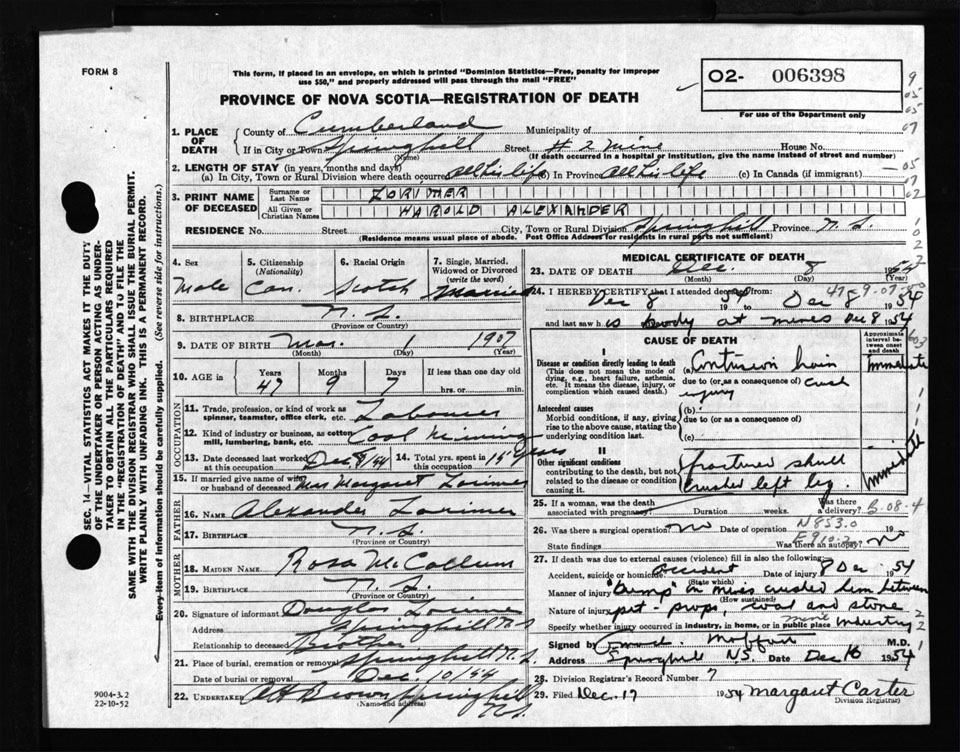 FORM 8
This form, if placed in an envelope, on which is printed "Dominion Statistics—Free, penalty for improper
use $50," and properly addressed will pass through the mail "FREE"
O2- 006398
For use of the Department only
PROVINCE OF NOVA SCOTIA—REGISTRATION OF DEATH
1. PLACE OF DEATH
County of Cumberland Municipality of
If in City or Town Springhill Street # 2 Mine House No.
(Name) (If death occurred in a hospital or institution, give the name instead of street and number)
2. LENGTH OF STAY (in years, months and days)
(a) In City, Town or Rural Division where death occurred all his life (b) In Province all his life (c) In Canada (if immigrant) —
3. PRINT NAME OF DECEASED
Surname or Last Name LORIMER
All Given or Christian Names HAROLD ALEXANDER
RESIDENCE No. Street City, Town or Rural Division Springhill Province N.S.
(Residence means usual place of abode. Post Office Address for residents in rural parts not sufficient)
4. Sex
Male
5. Citizenship
(Nationality)
Can.
6. Racial Origin
Scotch
7. Single, Married, Widowed or Divorced
(write the word)
Married
8. BIRTHPLACE N.S.
(Province or Country)
9. DATE OF BIRTH Mar. 1 1907
(Month) (Day) (Year)
10. AGE in Years Months Days If less than one day old
47 9 7 hrs. or min.
OCCUPATION
11. Trade, profession, or kind of work as
spinner, teamster, office clerk, etc. Labourer
12. Kind of industry or business, as cotton
mill, lumbering, bank, etc. Coal Mining
13. Date deceased last worked at this occupation Dec 8/54
14. Total yrs. spent in this occupation 15 years
15. If married give name of wife
or husband of deceased Mrs Margaret Lorimer
FATHER
16. NAME Alexander Lorimer
17. BIRTHPLACE N.S.
(Province or Country)
MOTHER
18. MAIDEN NAME Rosa McCallum
19. BIRTHPLACE N.S.
(Province or Country)
20. Signature of informant Douglas Lorimer
Address Springhill N.S
Relationship to deceased Brother
21. Place of burial, cremation or removal Springhill N.S.
Date of burial or removal Dec. 10/54
22. UNDERTAKER Brown Springhill
(Name and address) N.S.
MEDICAL CERTIFICATE OF DEATH
23. DATE OF DEATH Dec. 8 1954
(Month) (Day) (Year)
24. I HEREBY CERTIFY that I attended deceased from:
Dec 8 1954 to Dec 8 1954
and last saw h is body at mines Dec 8 1954
CAUSE OF DEATH
Approximate interval between onset and death
I
Disease or condition directly leading to death
(This does not mean the mode of
dying, e.g., heart failure, asthenia,
etc. It means the disease, injury, or
complication which caused death.)
(a) Contusion brain immediate
due to (or as a consequence of) crush
injury
Antecedent causes
Morbid conditions, if any, giving
rise to the above cause, stating the
underlying condition last.
(b)
due to (or as a consequence of)
(c)
II
Other significant conditions
contributing to the death, but not
related to the disease or condition
causing it.
fractured skull
crushed left leg. immediate
25. If a woman, was the death
associated with pregnancy? Duration weeks. Was there a delivery?
26. Was there a surgical operation? no Date of operation N853.0 19
State findings E910.2 Was there an autopsy? no
27. If death was due to external causes (violence) fill in also the following:
Accident, suicide or homicide Accident Date of injury 8 Dec 1954
(State which)
Manner of injury "Bump" in mines crushed him between
(How sustained)
Nature of injury pit-props, coal and stone
Specify whether injury occurred in industry, in home, or in public place industry
Signed by Moffatt M.D.
Address Springhill N.S. Date Dec 16 1954
28. Division Registrar's Record Number 7
29. Filed Dec. 17 1954 Margaret Carter
Division Registrar)
SEC. 14—VITAL STATISTICS ACT MAKES IT THE DUTY
OF THE UNDERTAKER OR PERSON ACTING AS UNDER-
TAKER TO OBTAIN ALL THE PARTICULARS REQUIRED
IN THE "REGISTRATION OF DEATH" AND TO FILE THE
SAME WITH THE DIVISION REGISTRAR WHO SHALL ISSUE THE BURIAL PERMIT.
WRITE PLAINLY WITH UNFADING INK. THIS IS A PERMANENT RECORD.
Every item of information should be carefully supplied. (See reverse side for instructions.)
9004-3.2
22-10-52